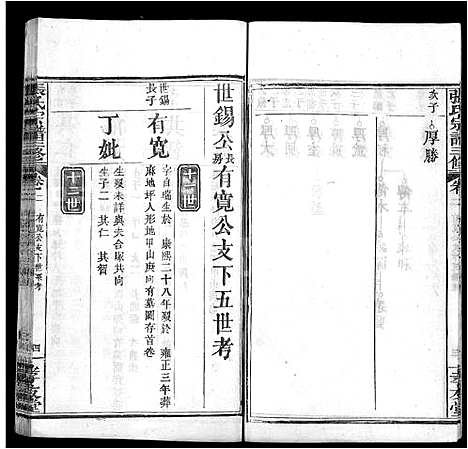 張氏宗譜三修
卷二
次子
厚勝
孝友堂
世錫公長房有寬公支下五世考
十二世
世錫長子
有寬
字自瑞生於 康熙二十八年歿於 雍正三年葬
麻地坪人形地甲山庚向有墓圖存首卷
丁妣
生歿未詳與夫合塚共向
生子二 其仁 其智
十三世
張氏宗譜三修
卷二
有寬公支下世系考
四
孝友堂